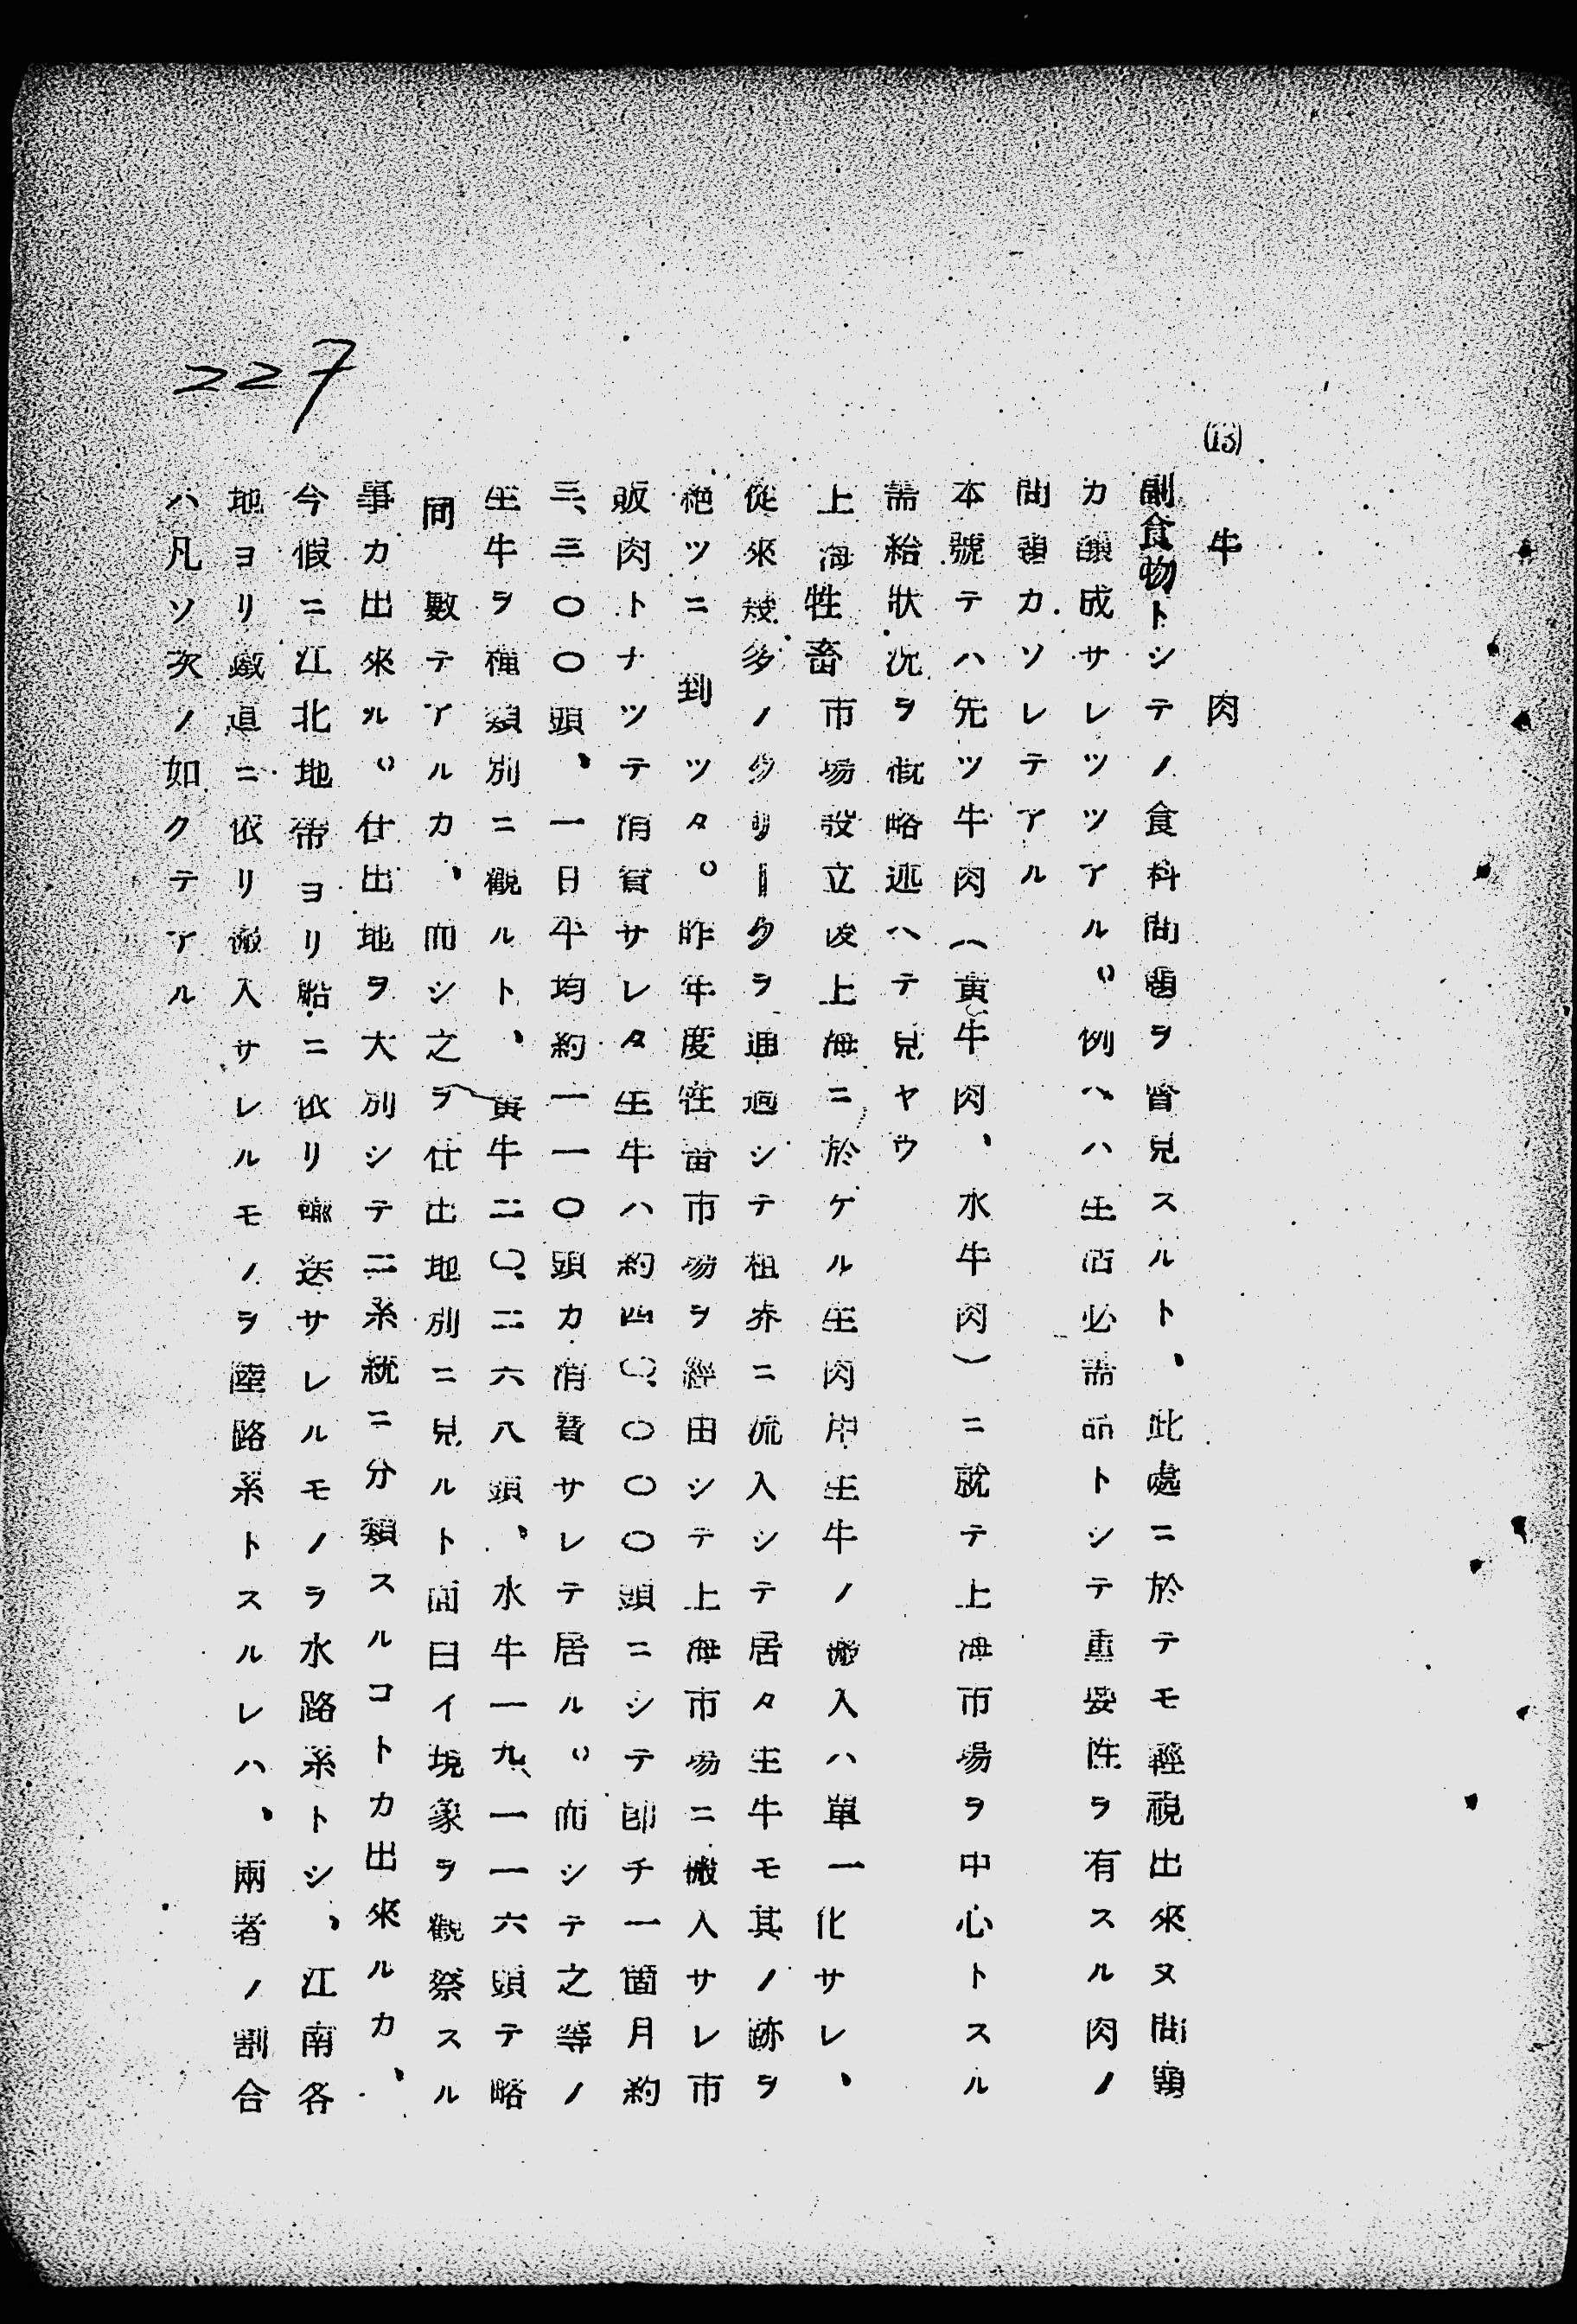 227
(13) 牛肉
副食物トシテノ食料問題ヲ管見スルト、此處ニ於テモ輕視出來ヌ問題
カ釀成サレツツアル。例ヘハ生活必需品トシテ重要性ヲ有スル肉ノ
問題カソレテアル
本號テハ先ツ牛肉(黄牛肉、水牛肉)ニ就テ上海市場ヲ中心トスル
需給狀況ヲ概略述ヘテ見ヤウ
上海牲畜市場設立後上海ニ於ケル生肉用生牛ノ搬入ハ單一化サレ、
從來幾多ノクリークヲ通過シテ租界ニ流入シテ居タ生牛モ其ノ跡ヲ
絶ツニ到ツタ。昨年度牲畜市場ヲ經由シテ上海市場ニ搬入サレ市
販肉トナツテ消費サレタ生牛ハ約四〇、〇〇〇頭ニシテ卽チ一箇月約
三、三〇〇頭、一日平均約一一〇頭カ消費サレテ居ル。而シテ之等ノ
生牛ヲ種類別ニ觀ルト、黄牛二〇、二六八頭、水牛一九、一一六頭テ略
同數テアルカ、而シ之ヲ仕出地別ニ見ルト面白イ現象ヲ觀察スル
事カ出來ル。仕出地ヲ大別シテ二系統ニ分類スルコトカ出來ルカ、
今假ニ江北地帶ヨリ船ニ依リ輸送サレルモノヲ水路系トシ、江南各
地ヨリ鐵道ニ依リ搬入サレルモノヲ陸路系トスルレハ、兩者ノ割合
ハ凡ソ次ノ如クテアル